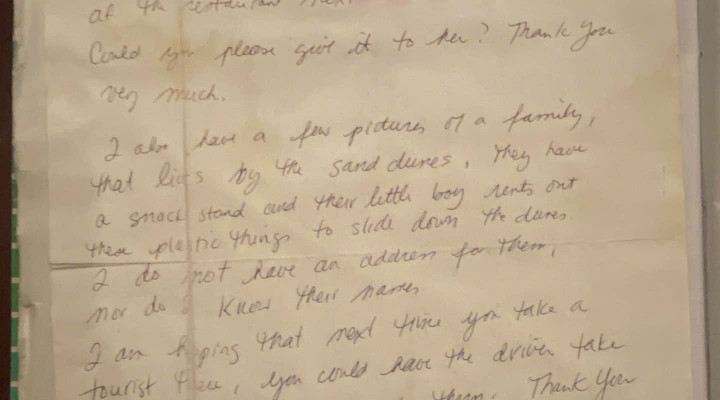 at the restaurant
Could you please give it to her? Thank you
very much.
I also have a few pictures of a family,
that lives by the sand dunes. They have
a snack stand and their little boy rents out
these plastic things to slide down the dunes.
I do not have an address for them,
nor do I know their names.
I am hoping that next time you take a
tourist there, you could have the driver take
them. Thank you